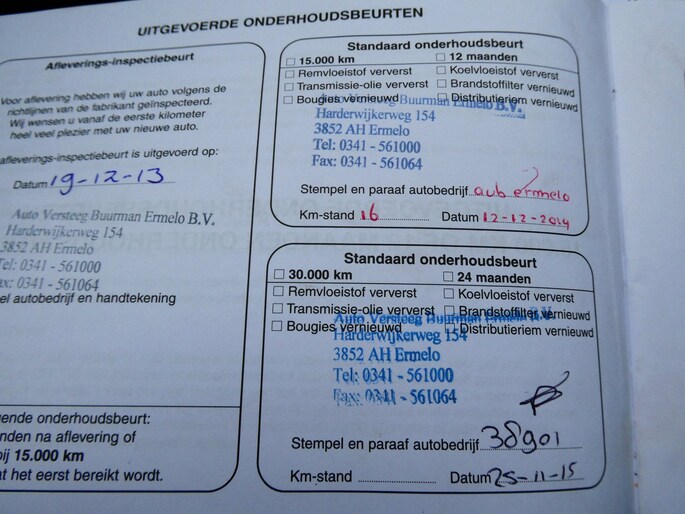 UITGEVOERDE ONDERHOUDSBEURTEN
Afleverings-inspectiebeurt
Voor aflevering hebben wij uw auto volgens de
richtlijnen van de fabrikant geïnspecteerd.
Wij wensen u vanaf de eerste kilometer
heel veel plezier met uw nieuwe auto.
afleverings-inspectiebeurt is uitgevoerd op:
Datum 19-12-13
Auto Versteeg Buurman Ermelo B.V.
Harderwijkerweg 154
3852 AH Ermelo
Tel: 0341 - 561000
Fax: 0341 - 561064
el autobedrijf en handtekening
ende onderhoudsbeurt:
nden na aflevering of
ij 15.000 km
at het eerst bereikt wordt.
Standaard onderhoudsbeurt
15.000 km 12 maanden
Remvloeistof ververst Koelvloeistof ververst
Transmissie-olie ververst Brandstoffilter vernieuwd
Bougies vernieuwd Distributieriem vernieuwd
Buurman Ermelo B.V.
Harderwijkerweg 154
3852 AH Ermelo
Tel: 0341 - 561000
Fax: 0341 - 561064
Stempel en paraaf autobedrijf aub ermelo
Km-stand 16 Datum 12-12-2014
Standaard onderhoudsbeurt
30.000 km 24 maanden
Remvloeistof ververst Koelvloeistof ververst
Transmissie-olie ververst Brandstoffilter vernieuwd
Bougies vernieuwd Distributieriem vernieuwd
Auto Versteeg Buurman Ermelo B.V.
Harderwijkerweg 154
3852 AH Ermelo
Tel: 0341 - 561000
Fax: 0341 - 561064
Stempel en paraaf autobedrijf 38901
Km-stand Datum 25-11-15